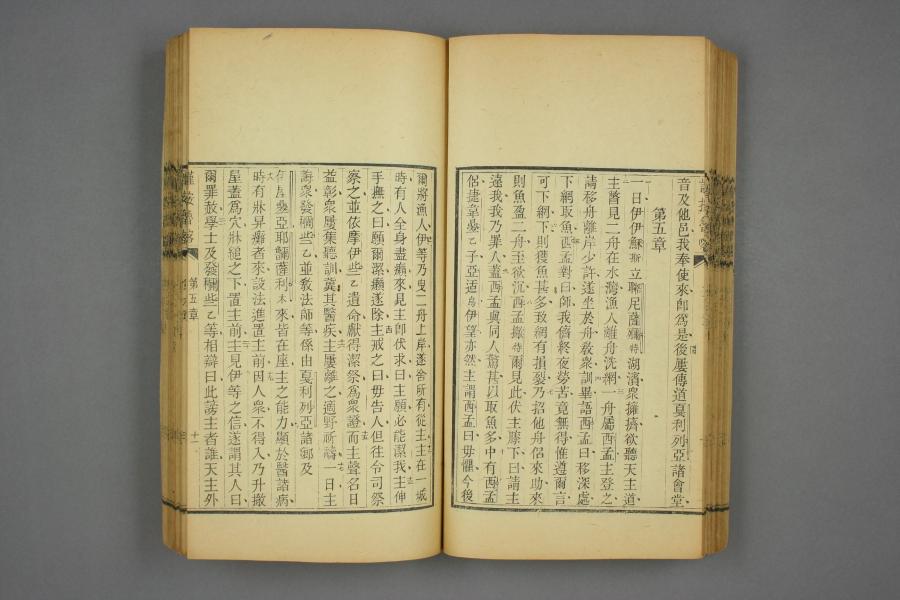 音及他邑我奉使來卽爲是後屢傳道戛利列亞諸會堂
第五章
一日伊伊穌斯立聯尼薩嘽特湖濱衆擁擠欲聽天主道
主瞥見二舟在水灣漁人離舟洗網一舟屬西孟主登之
請移舟離岸少許遂坐於舟敎衆訓畢語西孟曰移深處
下網取魚西孟對曰師我儕終夜勞苦竟無得惟遵爾言
可下網下則獲魚甚多致網有損裂乃招他舟侶來助來
則魚盈二舟至欲沉西孟撮特爾見此伏主膝下曰請主
遠我我乃罪人蓋西孟與同人驚甚以取魚多中有西孟
侶捷韋曡乙子亞适烏伊望亦然主謂西孟曰毋懼今後
爾將漁人伊等乃曳二舟上岸遂舍所有從主主在一城
時有人全身盡癩來見主卽伏求曰主願必能潔我主伸
手撫之曰願爾潔癩遂除主戒之曰毋吿人但往令司祭
察之並依摩伊些乙遺命獻得潔祭爲衆證而主聲名日
益彰衆屢集聽訓冀其醫疾主屢離之適野祈禱一日主
誨衆發檷些乙並敎法師等係由戛利列亞諸鄉及
亞耶嚻薩利木來皆在座主之能力顯於醫諸病
時有牀舁癱者來設法進置主前因人衆不得入乃升撤
屋蓋爲穴牀縋之下置主前主見伊等之信遂謂其人曰
爾罪赦學士及發檷些乙等相辯曰此謗主者誰天主外
第五章
十一